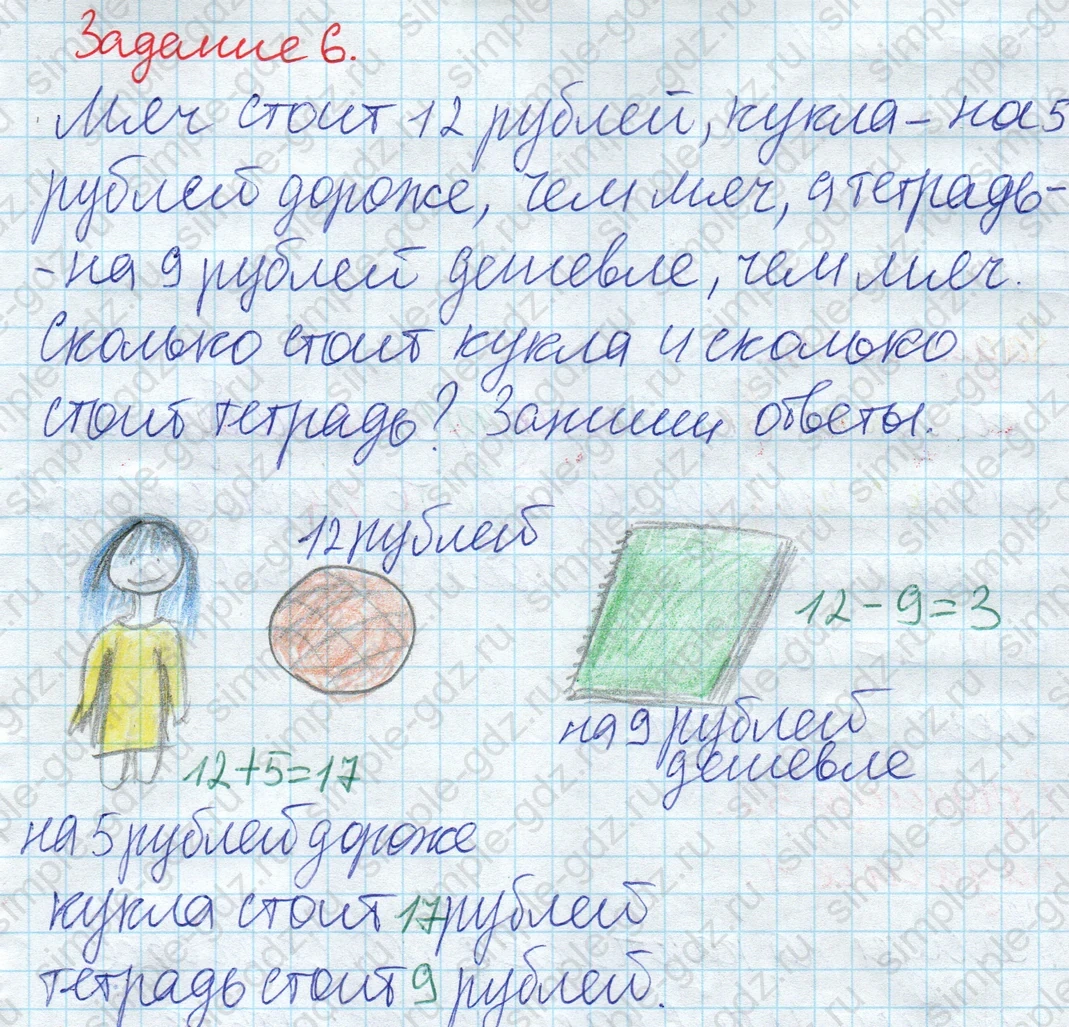 Задание 6.
Мяч стоит 12 рублей, кукла – на 5
рублей дороже, чем мяч, а тетрадь –
- на 9 рублей дешевле, чем мяч.
Сколько стоит кукла и сколько
стоит тетрадь? Запиши ответы.
12 рублей
12 - 9 = 3
на 9 рублей
дешевле
12+5=17
на 5 рублей дороже
кукла стоит 17 рублей
тетрадь стоит 9 рублей.
simple-gdz.ru